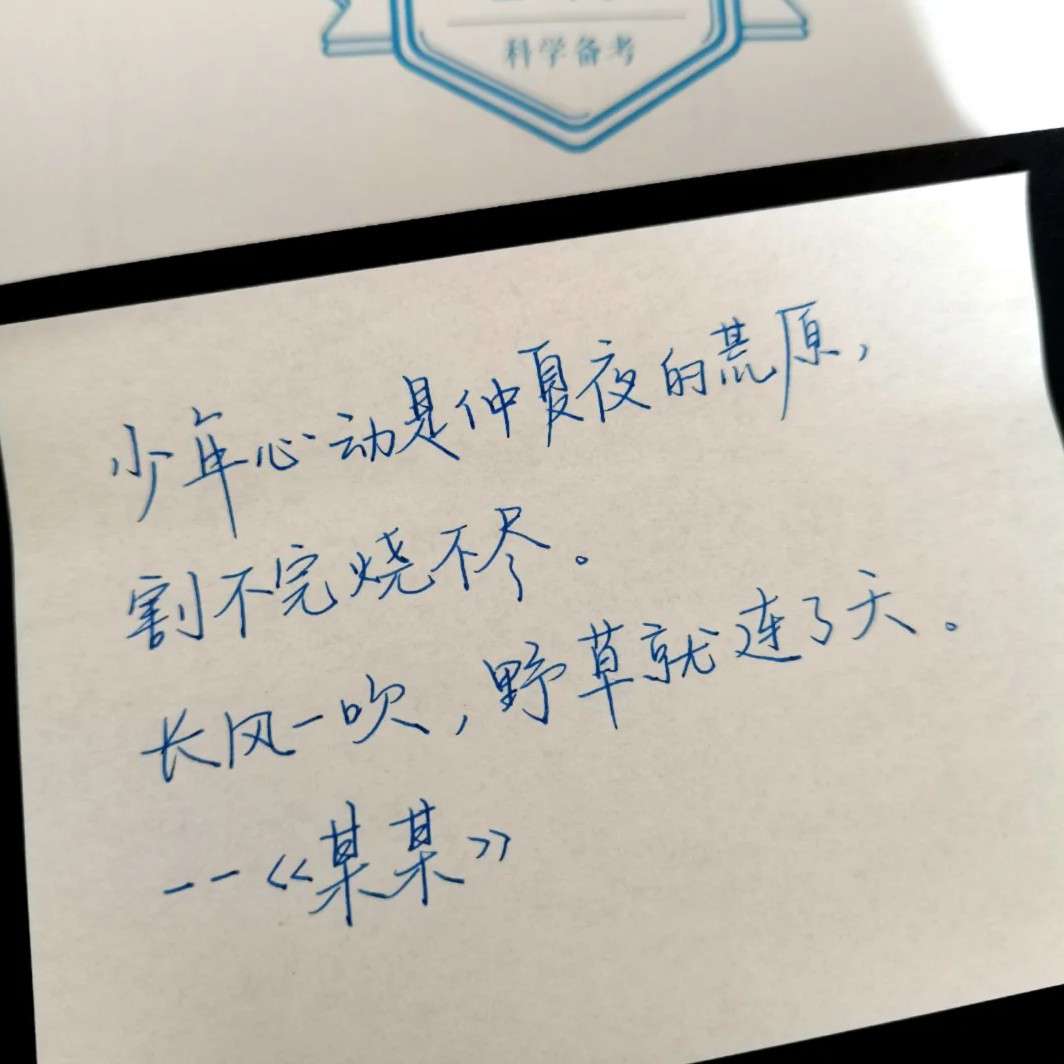 科学备考
少年心动是仲夏夜的荒原，
割不完烧不尽。
长风一吹，野草就连了天。
--《某某》